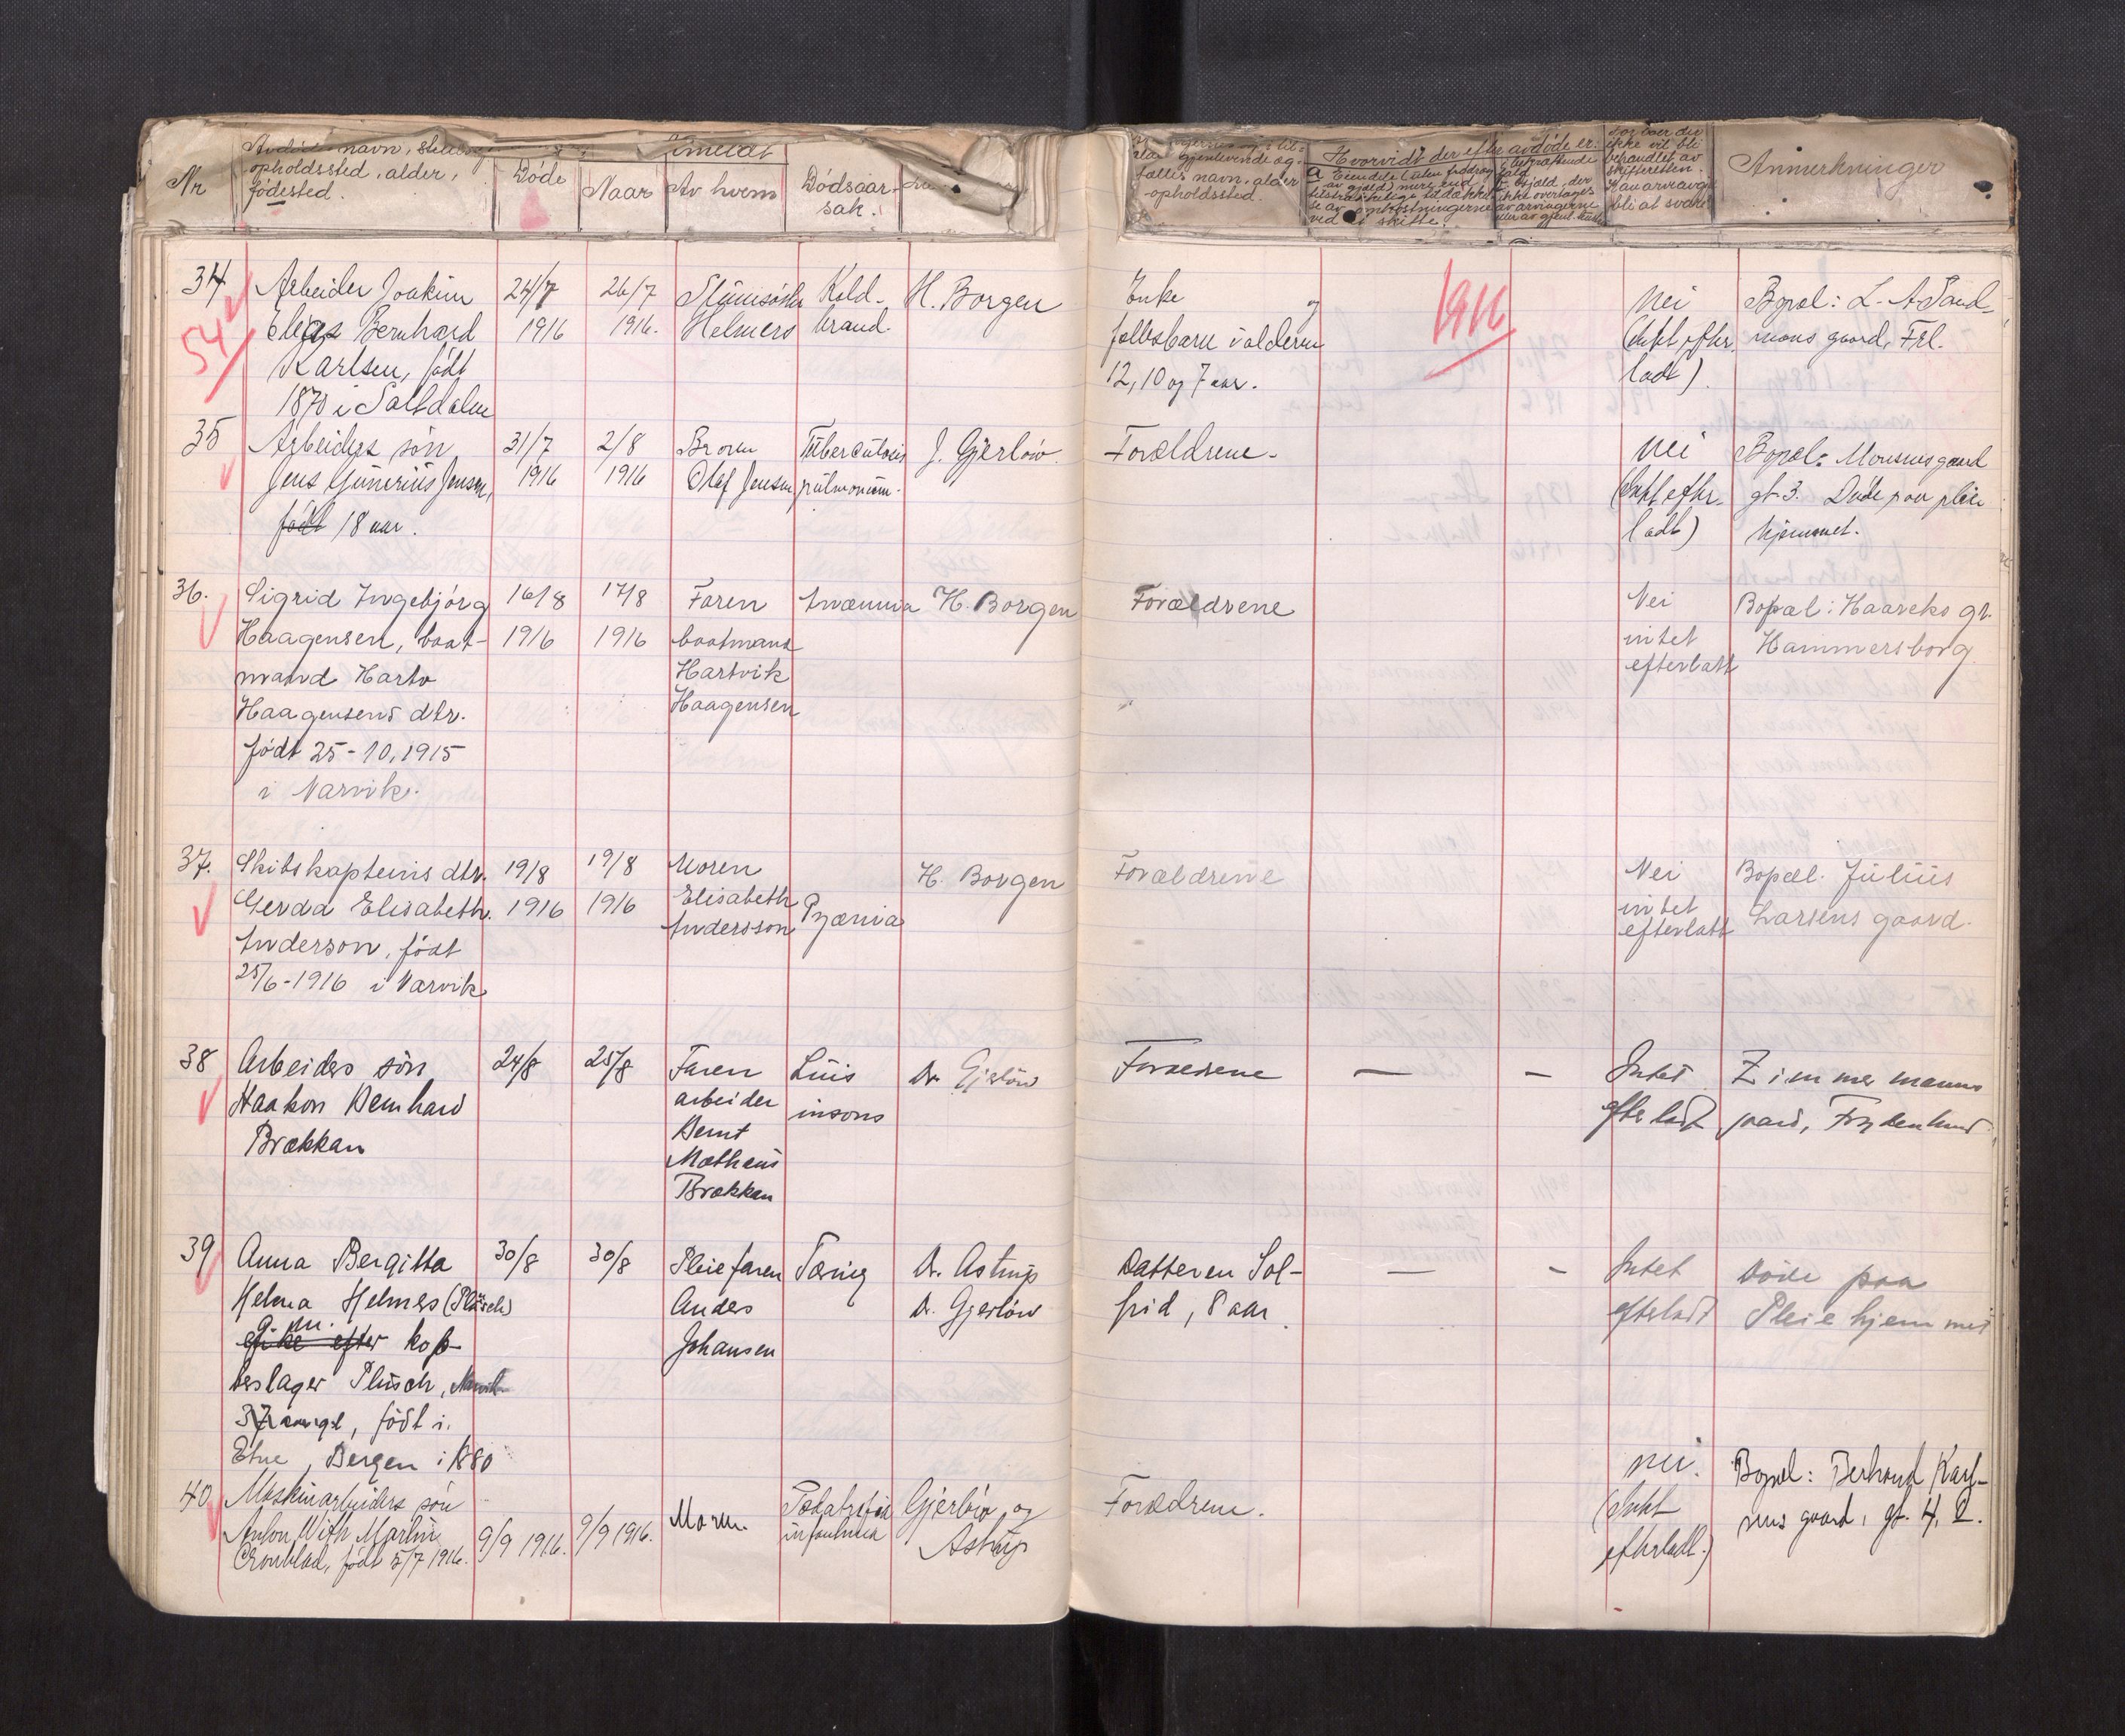 Nr
navn, 
opholdssted, alder,
fødested.
Døde
Anmeldt
Naar
Av hvem
Dødsaar-
sak.
gjenlevende æg-
tefælles navn, alder
opholdssted.
Hvorvidt der efter avdøde er:
ved et skifte.
ikke vil bli
behandlet av
skifteretten.
bli at svare
Anmerkninger
1916
34
54
Arbeider Joakim
Elias Bernhard
Karlsen, født
1870 i Saltdalen
24/7
1916
26/7
1916.
Helmers
Kold-
brand.
H. Borgen
Enke og
fællesbarn i alderen
12, 10 og 7 aar.
Nei
(Intet efter-
ladt)
Bopæl: L. A Sand-
mons gaard, Frl.
35
Arbeiders søn
Jens Gunerius Jensen,
født 18 aar.
31/7
1916
2/8
1916
Broren
Olaf Jensen
Tuberculosis
pulmonum.
J. Gjerløw.
Forældrene.
Nei
(Intet efter-
ladt)
Bopæl: Monsens gaard
gt. 3. Døde paa pleie
hjemmet.
36.
Sigrid Ingebjørg
Haagensen, baat-
mand Hartv
Haagensens dtr.
født 25-10, 1915
i Narvik.
16/8
1916
17/8
1916
Faren
baatmand
Hartvik
Haagensen
Anæmia
H. Borgen
Forældrene
Nei
intet
efterlatt
Bopæl: Haareks gt.
Hammersborg
37.
Skibskapteins dtr.
Gerda Elisabeth
Anderson, født
25/6-1916 i Narvik
19/8
1916
19/8
1916
Moren
Elisabeth
Andersson
Pyæmia
H. Borgen
Forældrene
Nei
intet
efterlatt
Bopæl. Julius
Larsens gaard.
38
Arbeiders søn
Haakon Bernhard
Brækkan
24/8
25/8
Faren
arbeider
Bernt
Matheus
Brækkan
Luis
insons
Dr Gjerløw
Forældrene
—
—
Intet
efterladt
Zimmermanns
gaard, Frydenlund
39
Anna Bergitta
Helma Helmers (Plüsch)
enke efter kob-
berslager Plüsch, Narvik
37 aar gl, født i
Etne, Bergen i 1880
30/8
30/8
Pleiefaren
Anders
Johansen
Tæring
Dr. Astrup
Dr. Gjerløw
Datteren Sol-
frid, 8 aar.
—
—
Intet
efterladt
Døde paa
Pleiehjemmet
40
Maskinarbeiders søn
Anton With Martin
Cronblad, født 5/7 1916.
9/9 1916.
9/9 1916.
Moren.
Gjerløw og
Astrup
Forældrene.
Nei.
(Intet
efterladt.)
Bopæl: Berhard Karl-
sens gaard, gt. 4, 2.